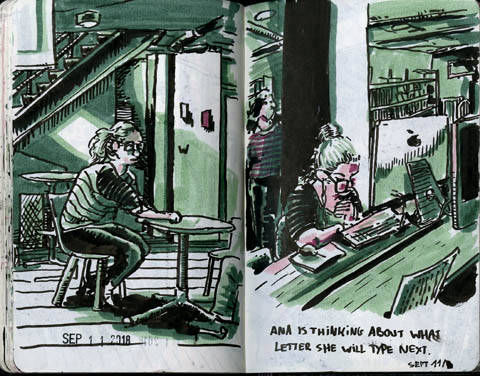 SEP 11 2018
ANA IS THINKING ABOUT WHAT
LETTER SHE WILL TYPE NEXT.
SEPT 11/